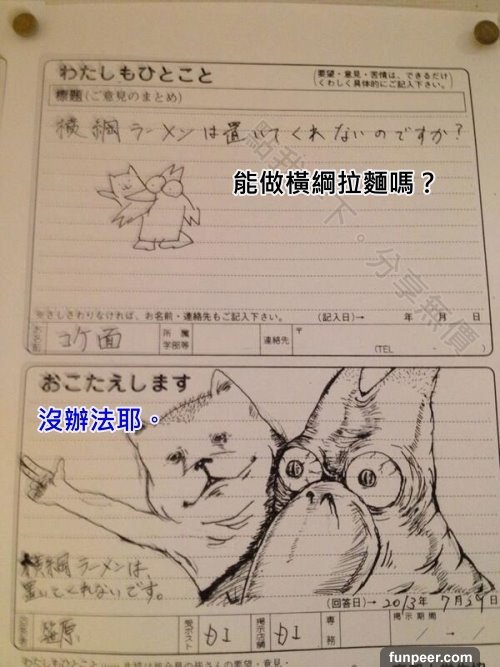 わたしもひとこと
要望・意見・苦情は、できるだけ
くわしく具体的にご記入下さい。
標題(ご意見のまとめ)
横綱ラーメンは置いてくれないのですか?
能做橫綱拉麵嗎？
點我一下。分享無價
※さしさわりなければ、お名前・連絡先もご記入下さい。 (記入日)→ 年 月 日
お名前 コケ面 所属学部等 連絡先 〒
(TEL
おこたえします
沒辦法耶。
横綱ラーメンは
置いてくれないです。
(回答日)→ 2013年 7月29日
笹原 受ポスト 掲示店舗 専務 掲示期間
～ /
funpeer.com